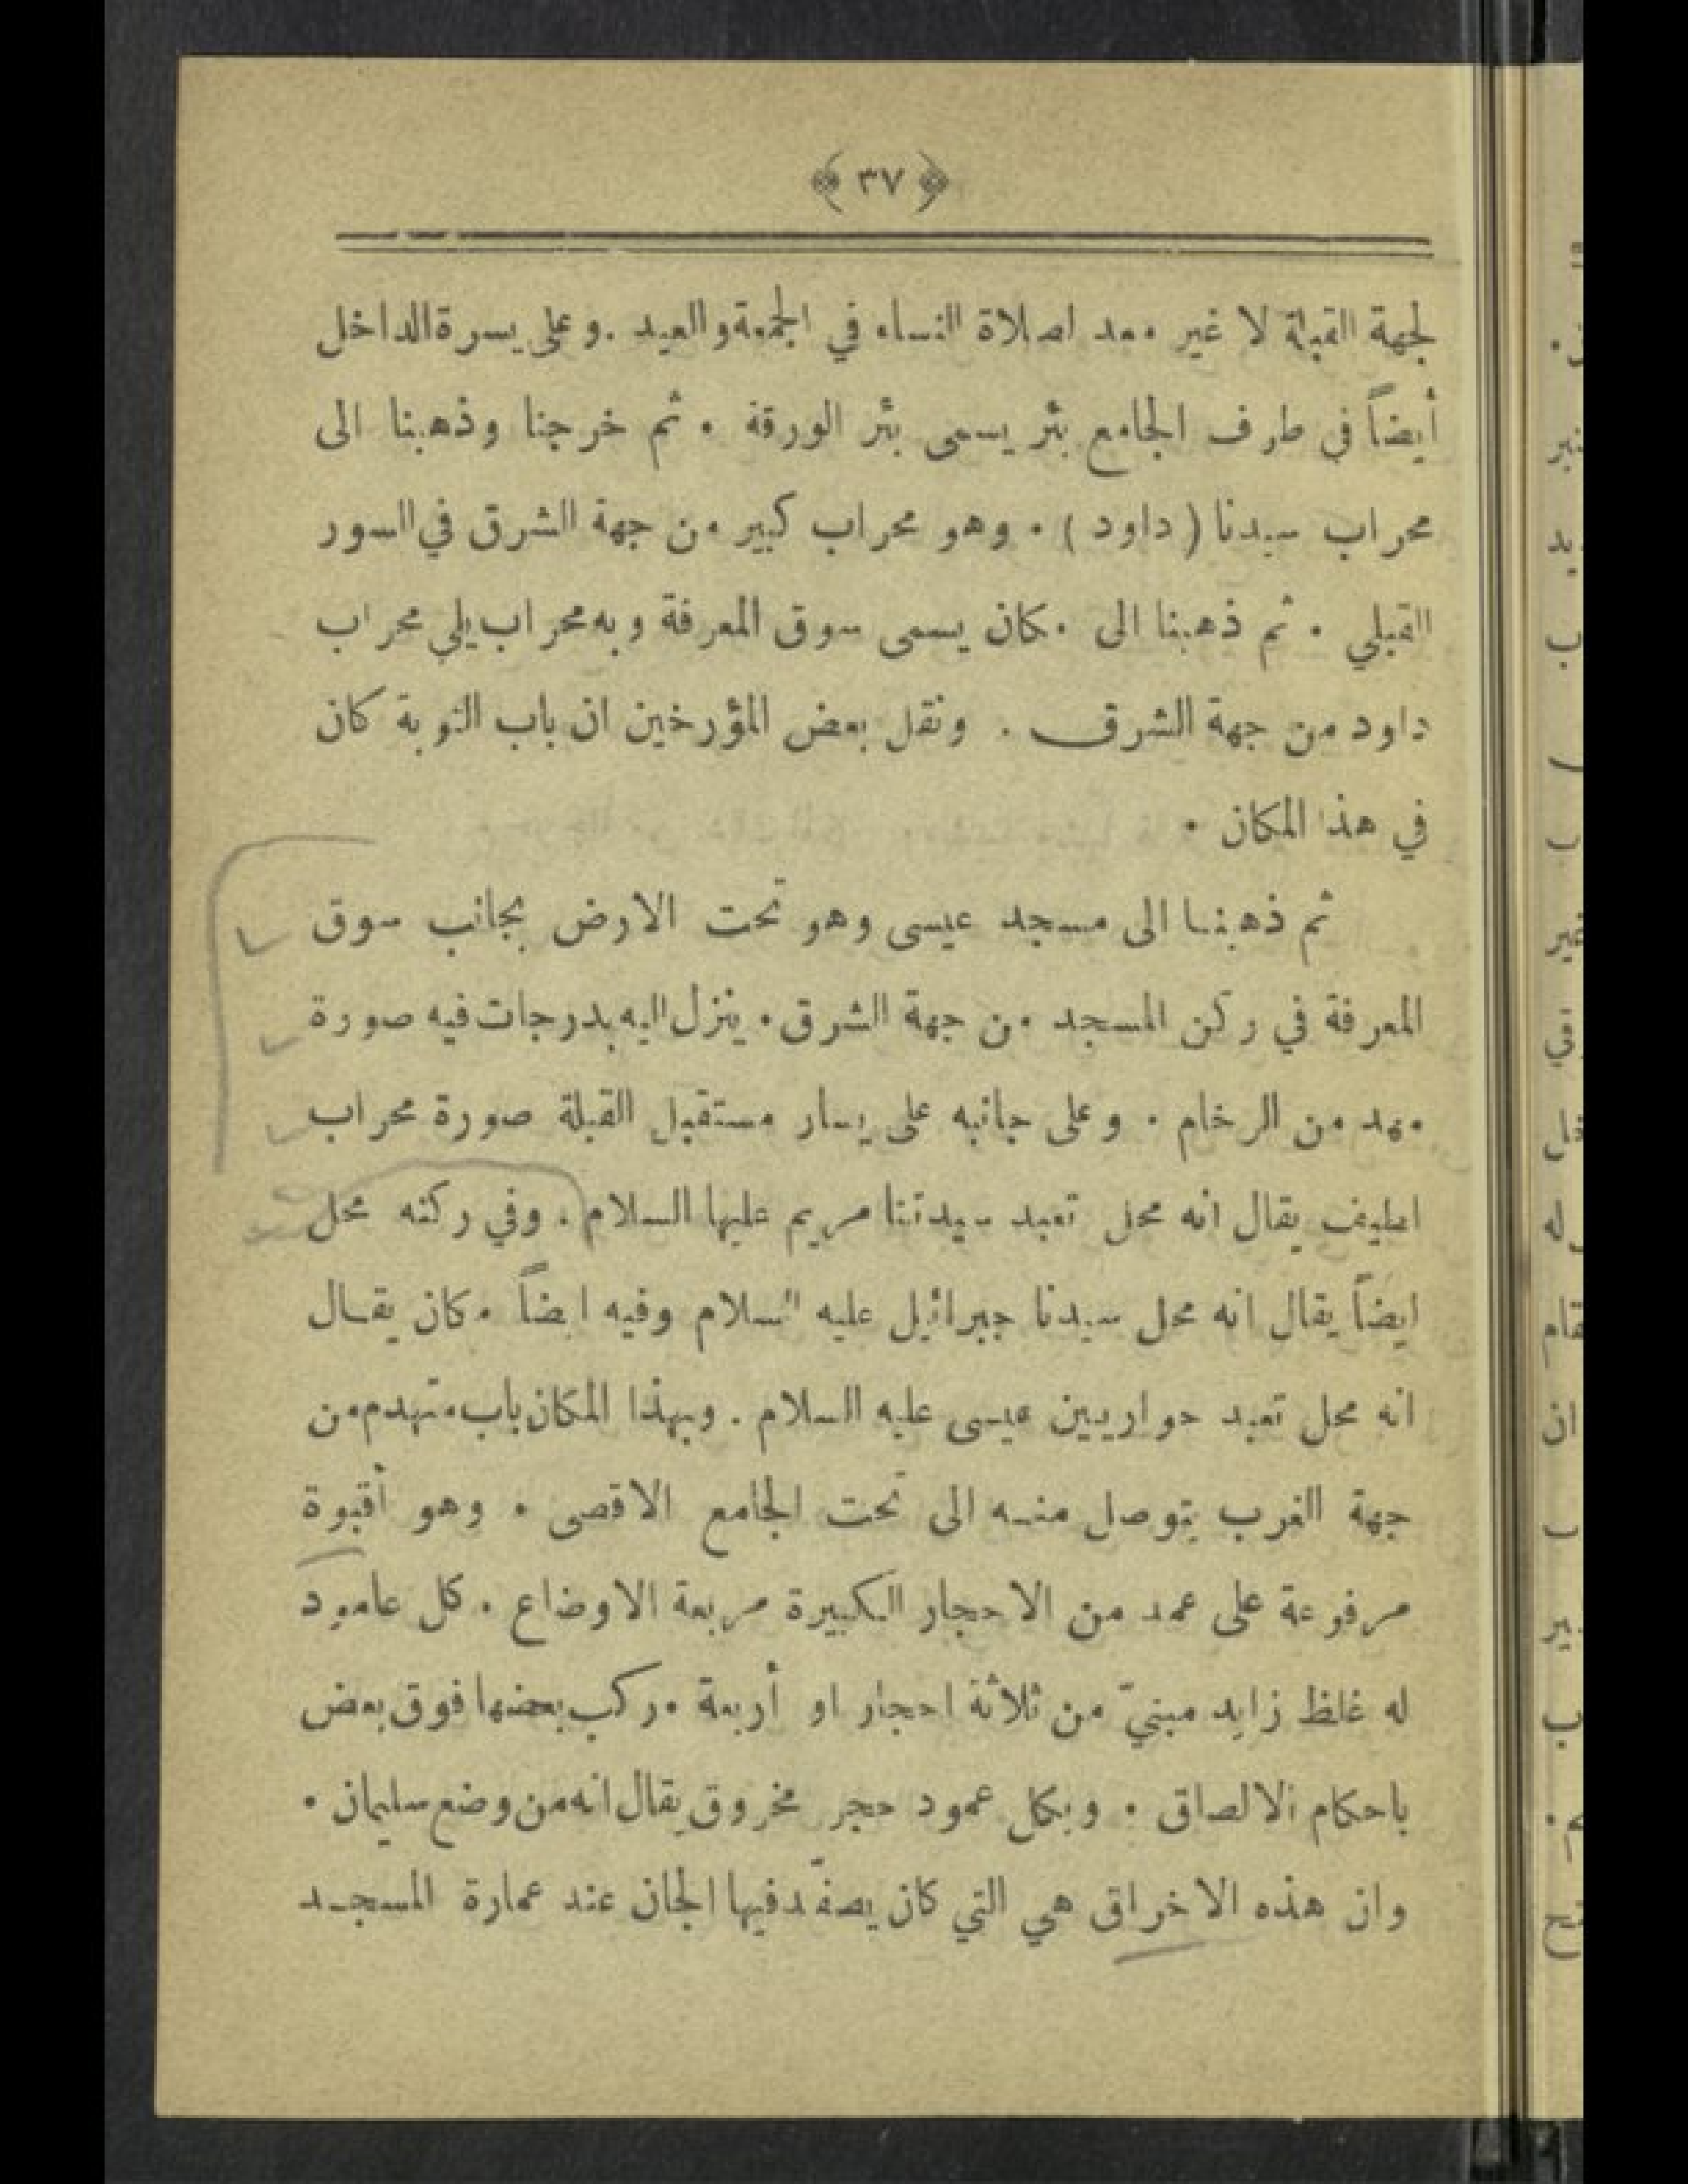 ﴿ ٣٧ ﴾
لجهة القبلة لا غير معد لصلاة النساء في الجمعة والعيد . وعلى يسرة الداخل
أيضاً في طرف الجامع بئر يسمى بئر الورقة . ثم خرجنا وذهبنا الى
محراب سيدنا ( داود ) . وهو محراب كبير من جهة الشرق في السور
القبلي . ثم ذهبنا الى مكان يسمى سوق المعرفة وبه محراب يلي محراب
داود من جهة الشرق . ونقل بعض المؤرخين ان باب التوبة كان
في هذا المكان .
ثم ذهبنا الى مسجد عيسى وهو تحت الارض بجانب سوق
المعرفة في ركن المسجد من جهة الشرق . ينزل اليه بدرجات فيه صورة
مهد من الرخام . وعلى جانبه على يسار مستقبل القبلة صورة محراب
لطيف يقال انه محل تعبد سيدتنا مريم عليها السلام . وفي ركنه محل
ايضاً يقال انه محل سيدنا جبرائيل عليه السلام وفيه ايضاً مكان يقال
انه محل تعبد حواريين عيسى عليه السلام . وبهذا المكان باب متهدم من
جهة الغرب يتوصل منه الى تحت الجامع الاقصى . وهو أقبوة
مرفوعة على عمد من الاحجار الكبيرة مربعة الاوضاع . كل عامود
له غلظ زايد مبنيّ من ثلاثة احجار او أربعة مركب بعضها فوق بعض
باحكام الالصاق . وبكل عمود حجر مخروق يقال انه من وضع سليمان .
وان هذه الاخراق هي التي كان يصفّد فيها الجان عند عمارة المسجد